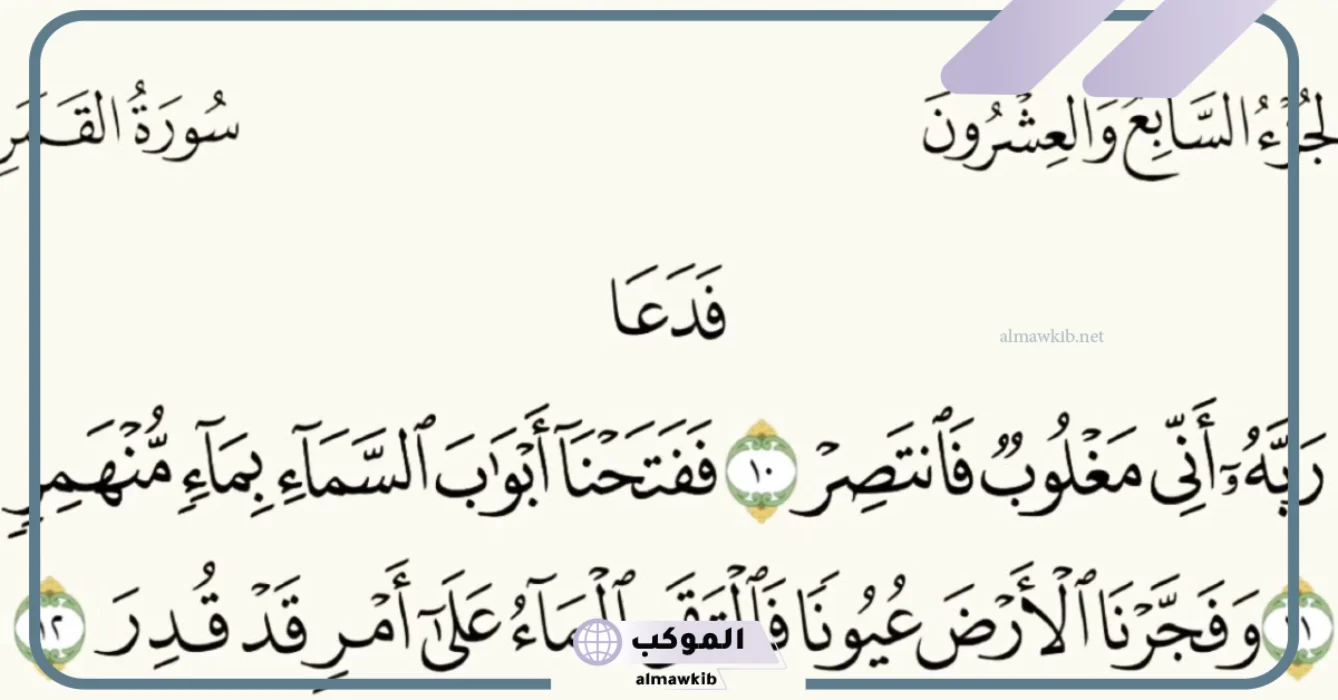 الجُزْءُ السَّابِعُ وَالعِشْرُونَ سُورَةُ القَمَرِ
فَدَعَا
almawkib.net
رَبَّهُۥٓ أَنِّى مَغْلُوبٌ فَٱنتَصِرْ ١٠ فَفَتَحْنَآ أَبْوَٰبَ ٱلسَّمَآءِ بِمَآءٍ مُّنْهَمِرٍ
١١ وَفَجَّرْنَا ٱلْأَرْضَ عُيُونًا فَٱلْتَقَى ٱلْمَآءُ عَلَىٰٓ أَمْرٍ قَدْ قُدِرَ ١٢
الموكب
almawkib